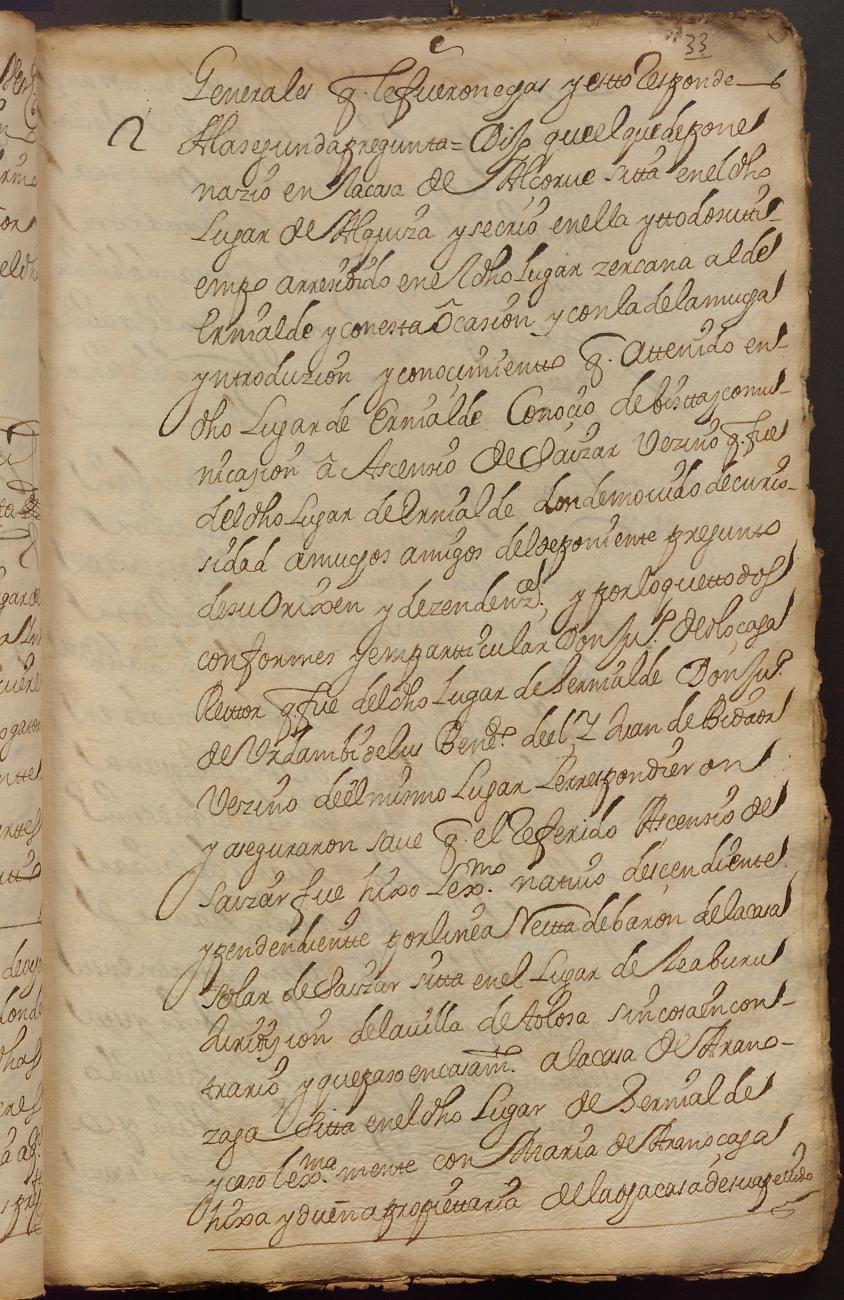 33
Generales q. le fueron echas y esto Responde
2 A la segunda pregunta = Dijo que el que depone
nazio en la casa de Alcorue sitta en el dho
Lugar de Alquiza y se crio en ella y ttodo su tti-
empo a rresidido en el dho Lugar zercana al de
Ermialde y con esta ocasion y con la de la mucha
yntroduzion y conocimientto q. a ttenido en
dho Lugar de Ermialde Conocio de bistta y comu-
nicazion â Ascensio de Saizar Vezino q. fue
del dho Lugar de Ermialde donde mouido de curio-
sidad a muchos amigos del deponiente pregunto
de su Orixen y dezendenz.ª, y por lo que ttodos
conformes y en partticular Don Ju.º de
Rettor q. fue del dho Lugar de Bermialde Don Ju.º
de Vrdambidelus Benef.do de el Y Juan de Bidaor
Vezino de el mismo Lugar Le rrespondieron
y aseguraron saue q. el Referido Ascensio de
Saizar fue hixo Lex.mo natiuo descendiente
y pendendientte por linea Rectta de baron de la casa
solar de Saizar sitta en el Lugar de Leaburu
Jurisdicion de la uilla de Tolosa sin cosa en con-
trario y que paso en casam.to a la casa de Arano-
zaga sitta en el dho Lugar de Bermialde
y caso lex.ma mente con Maria de Aranocaga
hixa y dueña propiettaria de la dha casa de su apellido